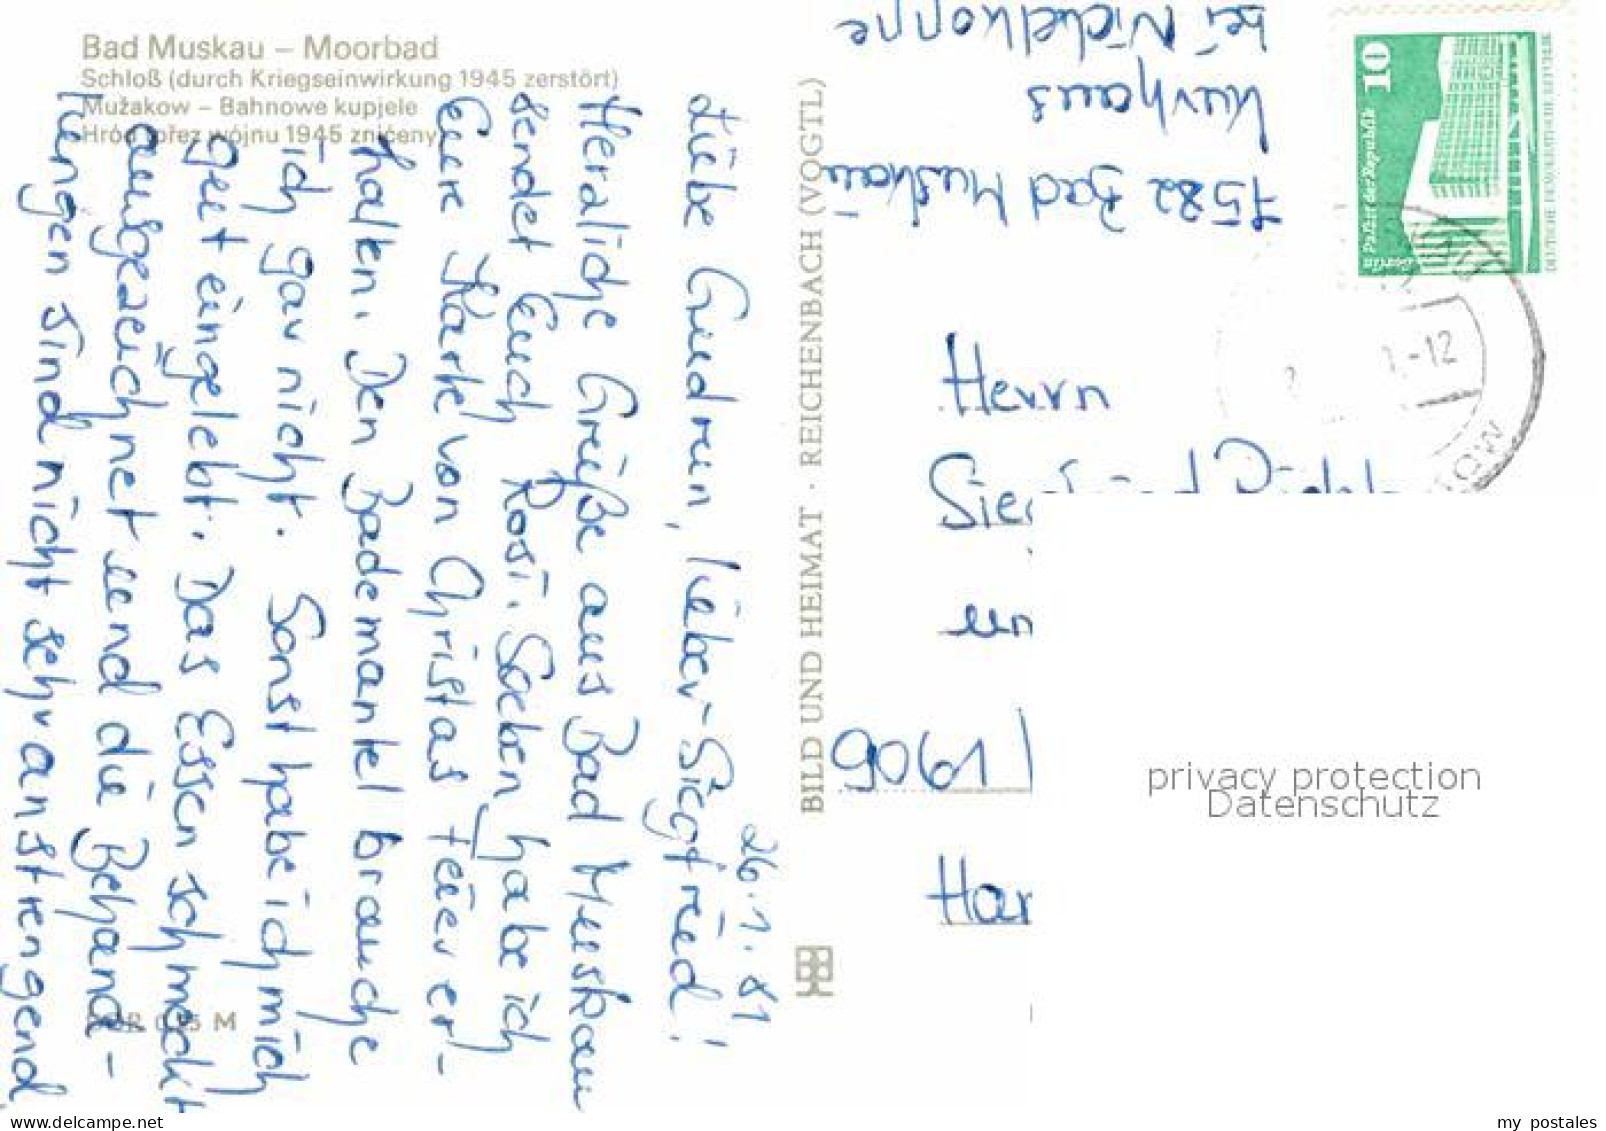 Bad Muskau – Moorbad
Schloß (durch Kriegseinwirkung 1945 zerstört)
Mužakow – Bahnowe kupjele
wójnu 1945 zničeny
26.1.81
Liebe Gudrun, lieber Siegfried!
Herzliche Grüße aus Bad Muskau
sendet Euch Rosi. Soeben habe ich
Eure Karte von Christas Feier er-
halten. Den Bademantel brauche
ich gar nicht. Sonst habe ich mich
gut eingelebt. Das Essen schmeckt
ausgezeichnet und die Behand-
lungen sind nicht sehr anstrengend
M
BILD UND HEIMAT · REICHENBACH (VOGTL)
7582 Bad Muskau
Kurhaus
bei
10
Palast der Republik
Berlin
DEUTSCHE DEMOKRATISCHE REPUBLIK
-12
Herrn
1906
privacy protection
Datenschutz
www.delcampe.net
my_postales